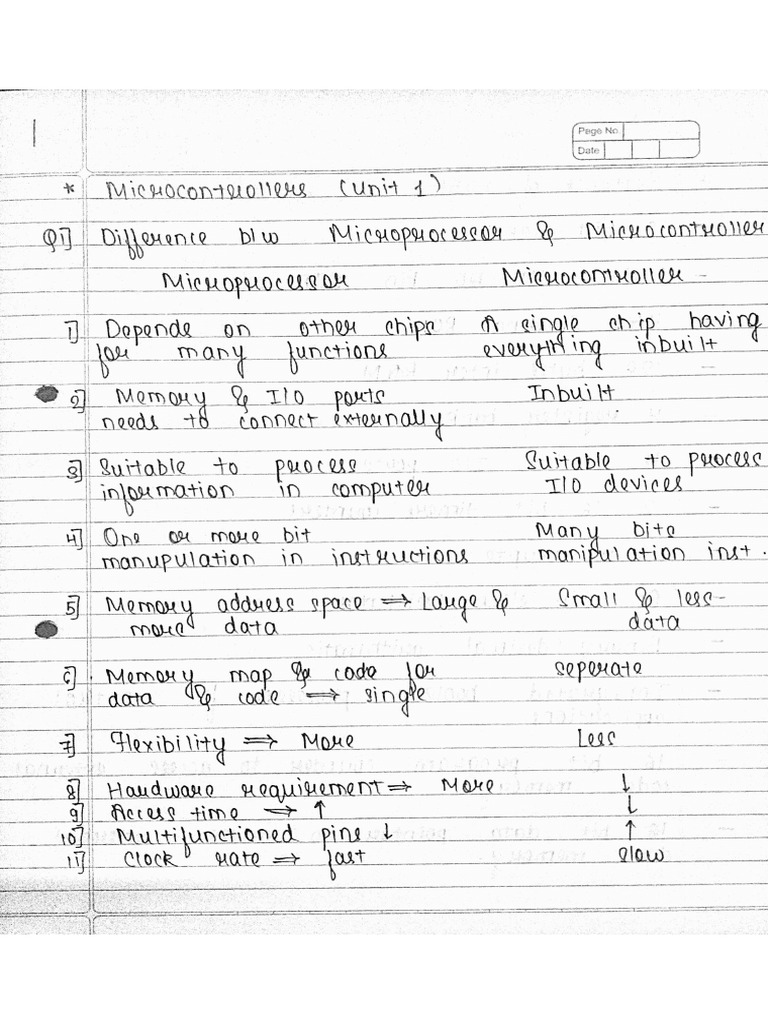 1
Page No.
Date
* Microcontrollers (Unit 1)
Q1] Difference b/w Microprocessor & Microcontroller
Microprocessor Microcontroller -
1] Depends on other chips A single chip having
for many functions everything inbuilt
2] Memory & I/O ports Inbuilt
needs to connect externally
3] Suitable to process Suitable to process
information in computer I/O devices
4] One or more bit Many bits
manupulation in instructions manipulation inst.
5] Memory address space ⇒ Large & Small & less
more data data
6]. Memory map & code for seperate
data & code ⇒ single
7] Flexibility ⇒ More Less
8] Hardware requirement ⇒ More ↓
9] Access time ⇒ ↑ ↓
10] Multifunctioned pins ↓ ↑
11] Clock rate ⇒ fast slow